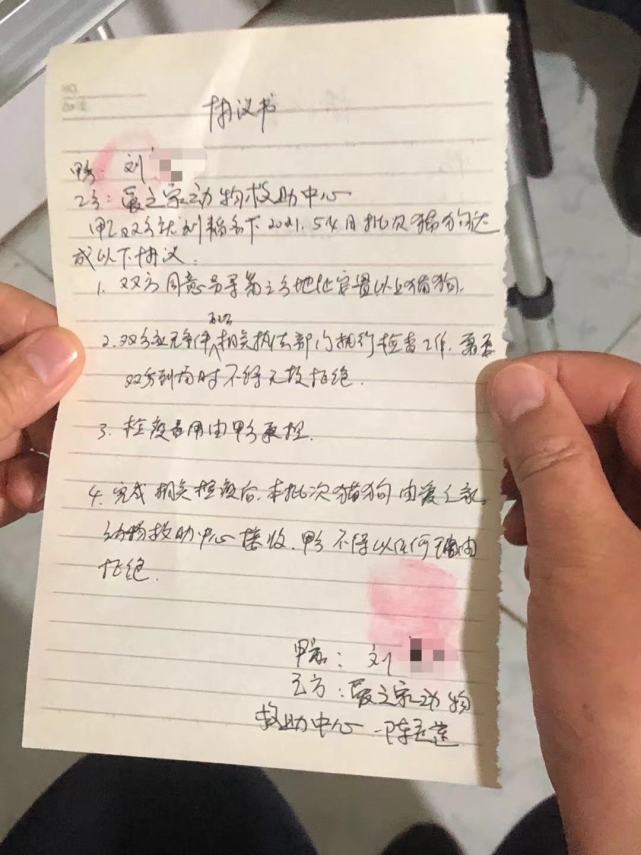 协议书
甲方：刘
乙方：爱之家动物救助中心
甲乙双方就刘 名下2021.5.4日批次猫狗达
成以下协议
1. 双方同意另寻第三方地址安置以上猫狗.
配合
2. 双方应无条件相关执法部门执行检查工作. 需要
双方到场时不得无故拒绝.
3. 检疫费用由甲方承担.
4. 完成相关检疫后, 本批次猫狗由爱之家
动物救助中心接收. 甲方不得以任何理由
拒绝.
甲方：刘
乙方：爱之家动物
救助中心 -陈